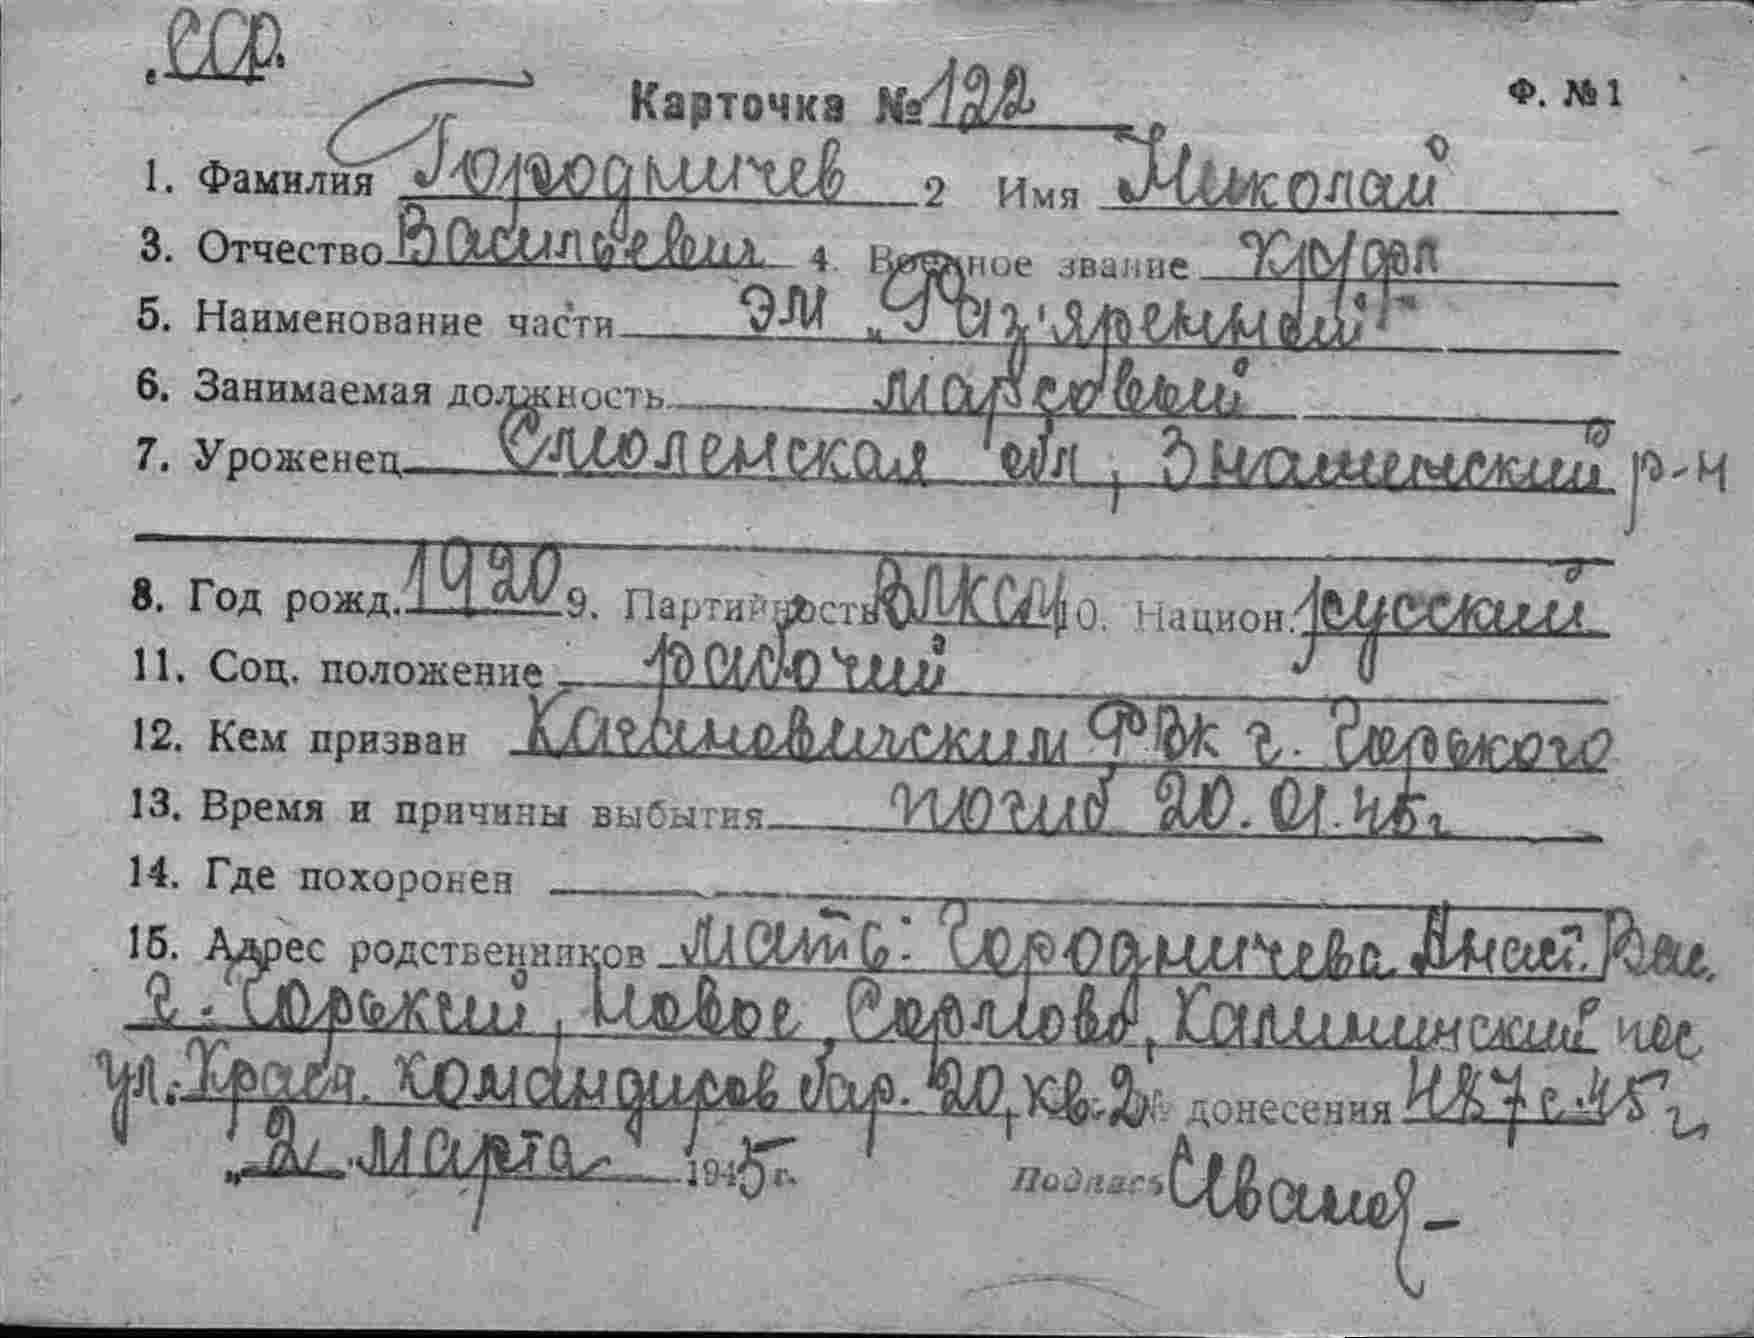 ССР.
Карточка № 122 Ф. № 1
1. Фамилия Городничев 2 Имя Николай
3. Отчество Васильевич 4. Военное звание кр/фл
5. Наименование части ЭМ „Раз'яренный"
6. Занимаемая должность марсовый
7. Уроженец Смоленская обл, Знаменский р-н
8. Год рожд. 1920 9. Партийность ВЛКСМ 10. Национ. русский
11. Соц. положение рабочий
12. Кем призван Кагановичским РВК г. Горького
13. Время и причины выбытия погиб 20.01.45г
14. Где похоронен
15. Адрес родственников мать: Городничева Анаст. Вас.
г. Горький, Новое Сормово, Калининский пос
ул. Красн. командиров бар. 20, кв. 2 № донесения 487с.45г
„2„ марта 1945 г. Подпись Иванов